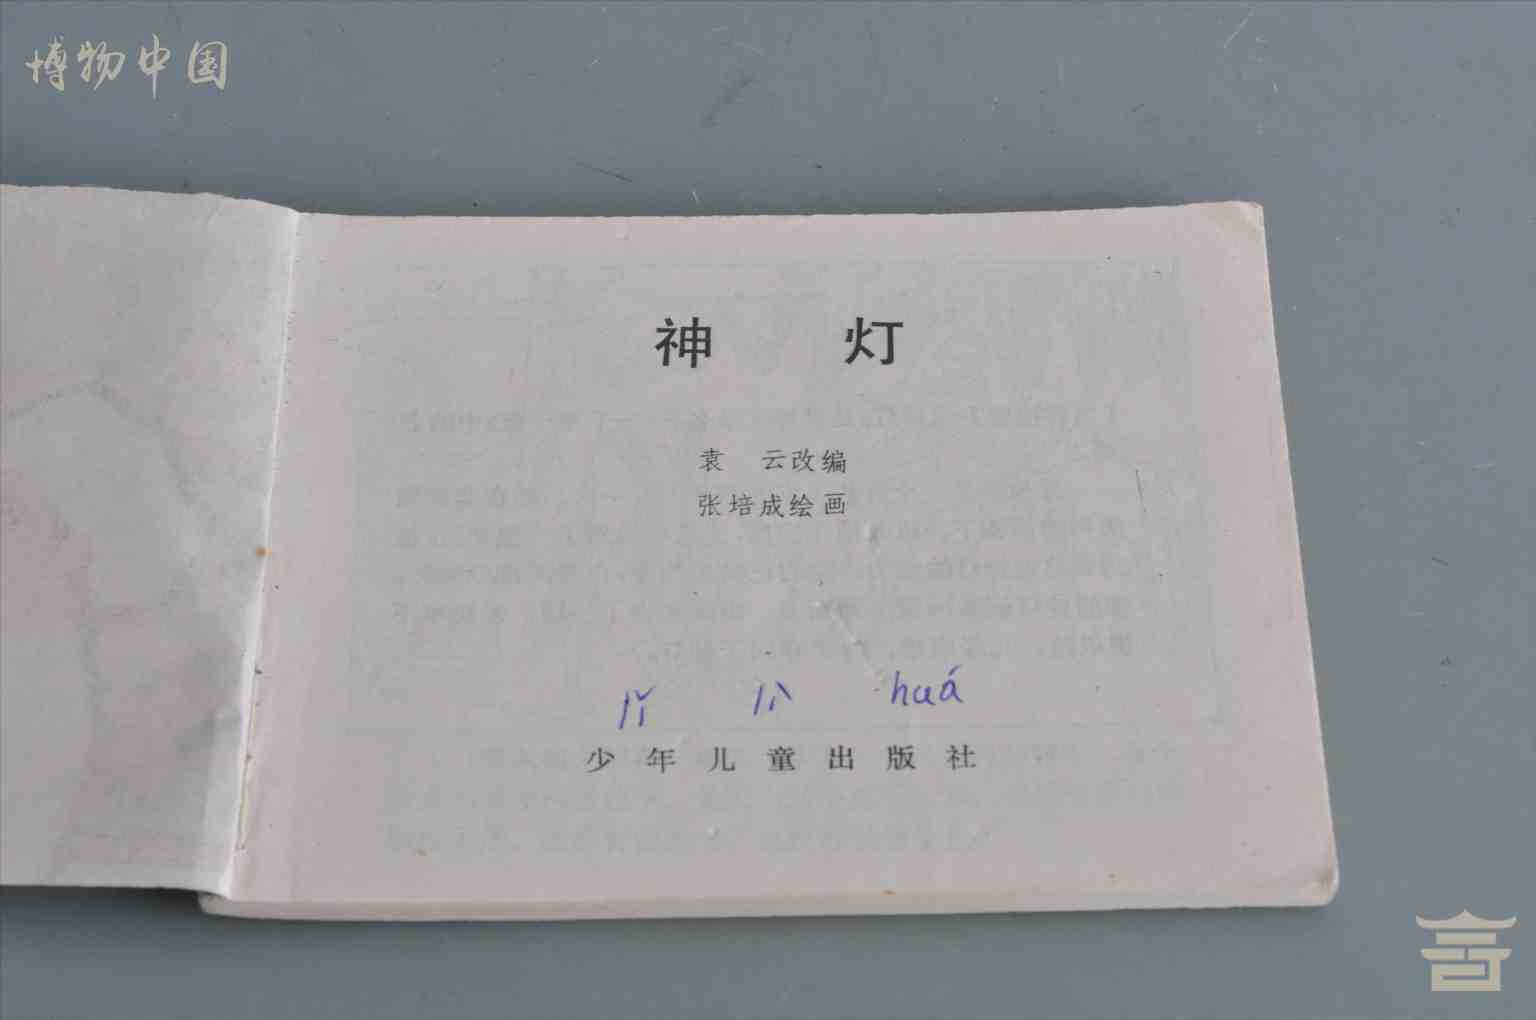 博物中国
神 灯
袁 云改编
张培成绘画
huá
少年儿童出版社